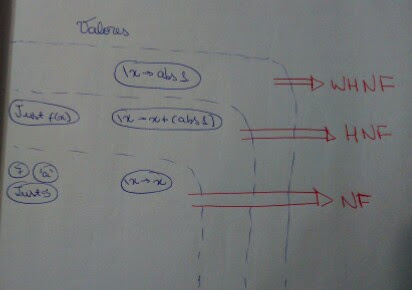 Valores
\x → abs 1
WHNF
Just f(x)
\x → x + (abs 1)
HNF
7 'a'
Just 5
\x → x
NF